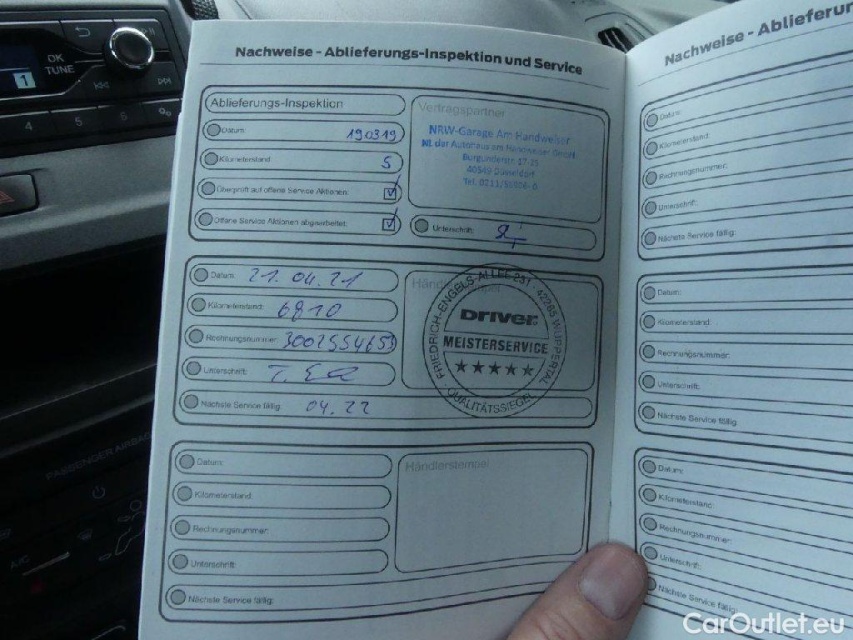 OK
TUNE
1
4 5 6
PASSENGER AIRBAG
A/C
Nachweise - Ablieferungs-Inspektion und Service
Ablieferungs-Inspektion
Datum: 190319
Kilometerstand: 5
Überprüft auf offene Service Aktionen:
Offene Service Aktionen abgearbeitet:
Vertragspartner
NRW-Garage Am Handweiser
NL der Autohaus am Handweiser GmbH
40549 Düsseldorf
Unterschrift:
Datum: 21.04.21
Kilometerstand: 6810
Rechnungsnummer: 3002554653
Unterschrift:
Nächste Service fällig: 04.22
Händlerstempel
FRIEDRICH-ENGELS-ALLEE 231 · 42285 WUPPERTAL
DRIVER
MEISTERSERVICE
QUALITÄTSSIEGEL
Datum:
Kilometerstand:
Rechnungsnummer:
Unterschrift:
Nächste Service fällig:
Händlerstempel
Nachweise - Ablieferun
Datum:
Kilometerstand:
Rechnungsnummer:
Unterschrift:
Nächste Service fällig:
Datum:
Kilometerstand:
Rechnungsnummer:
Unterschrift:
Nächste Service fällig:
Datum:
Kilometerstand:
Rechnungsnummer:
Unterschrift:
Nächste Service fällig:
CarOutlet.eu